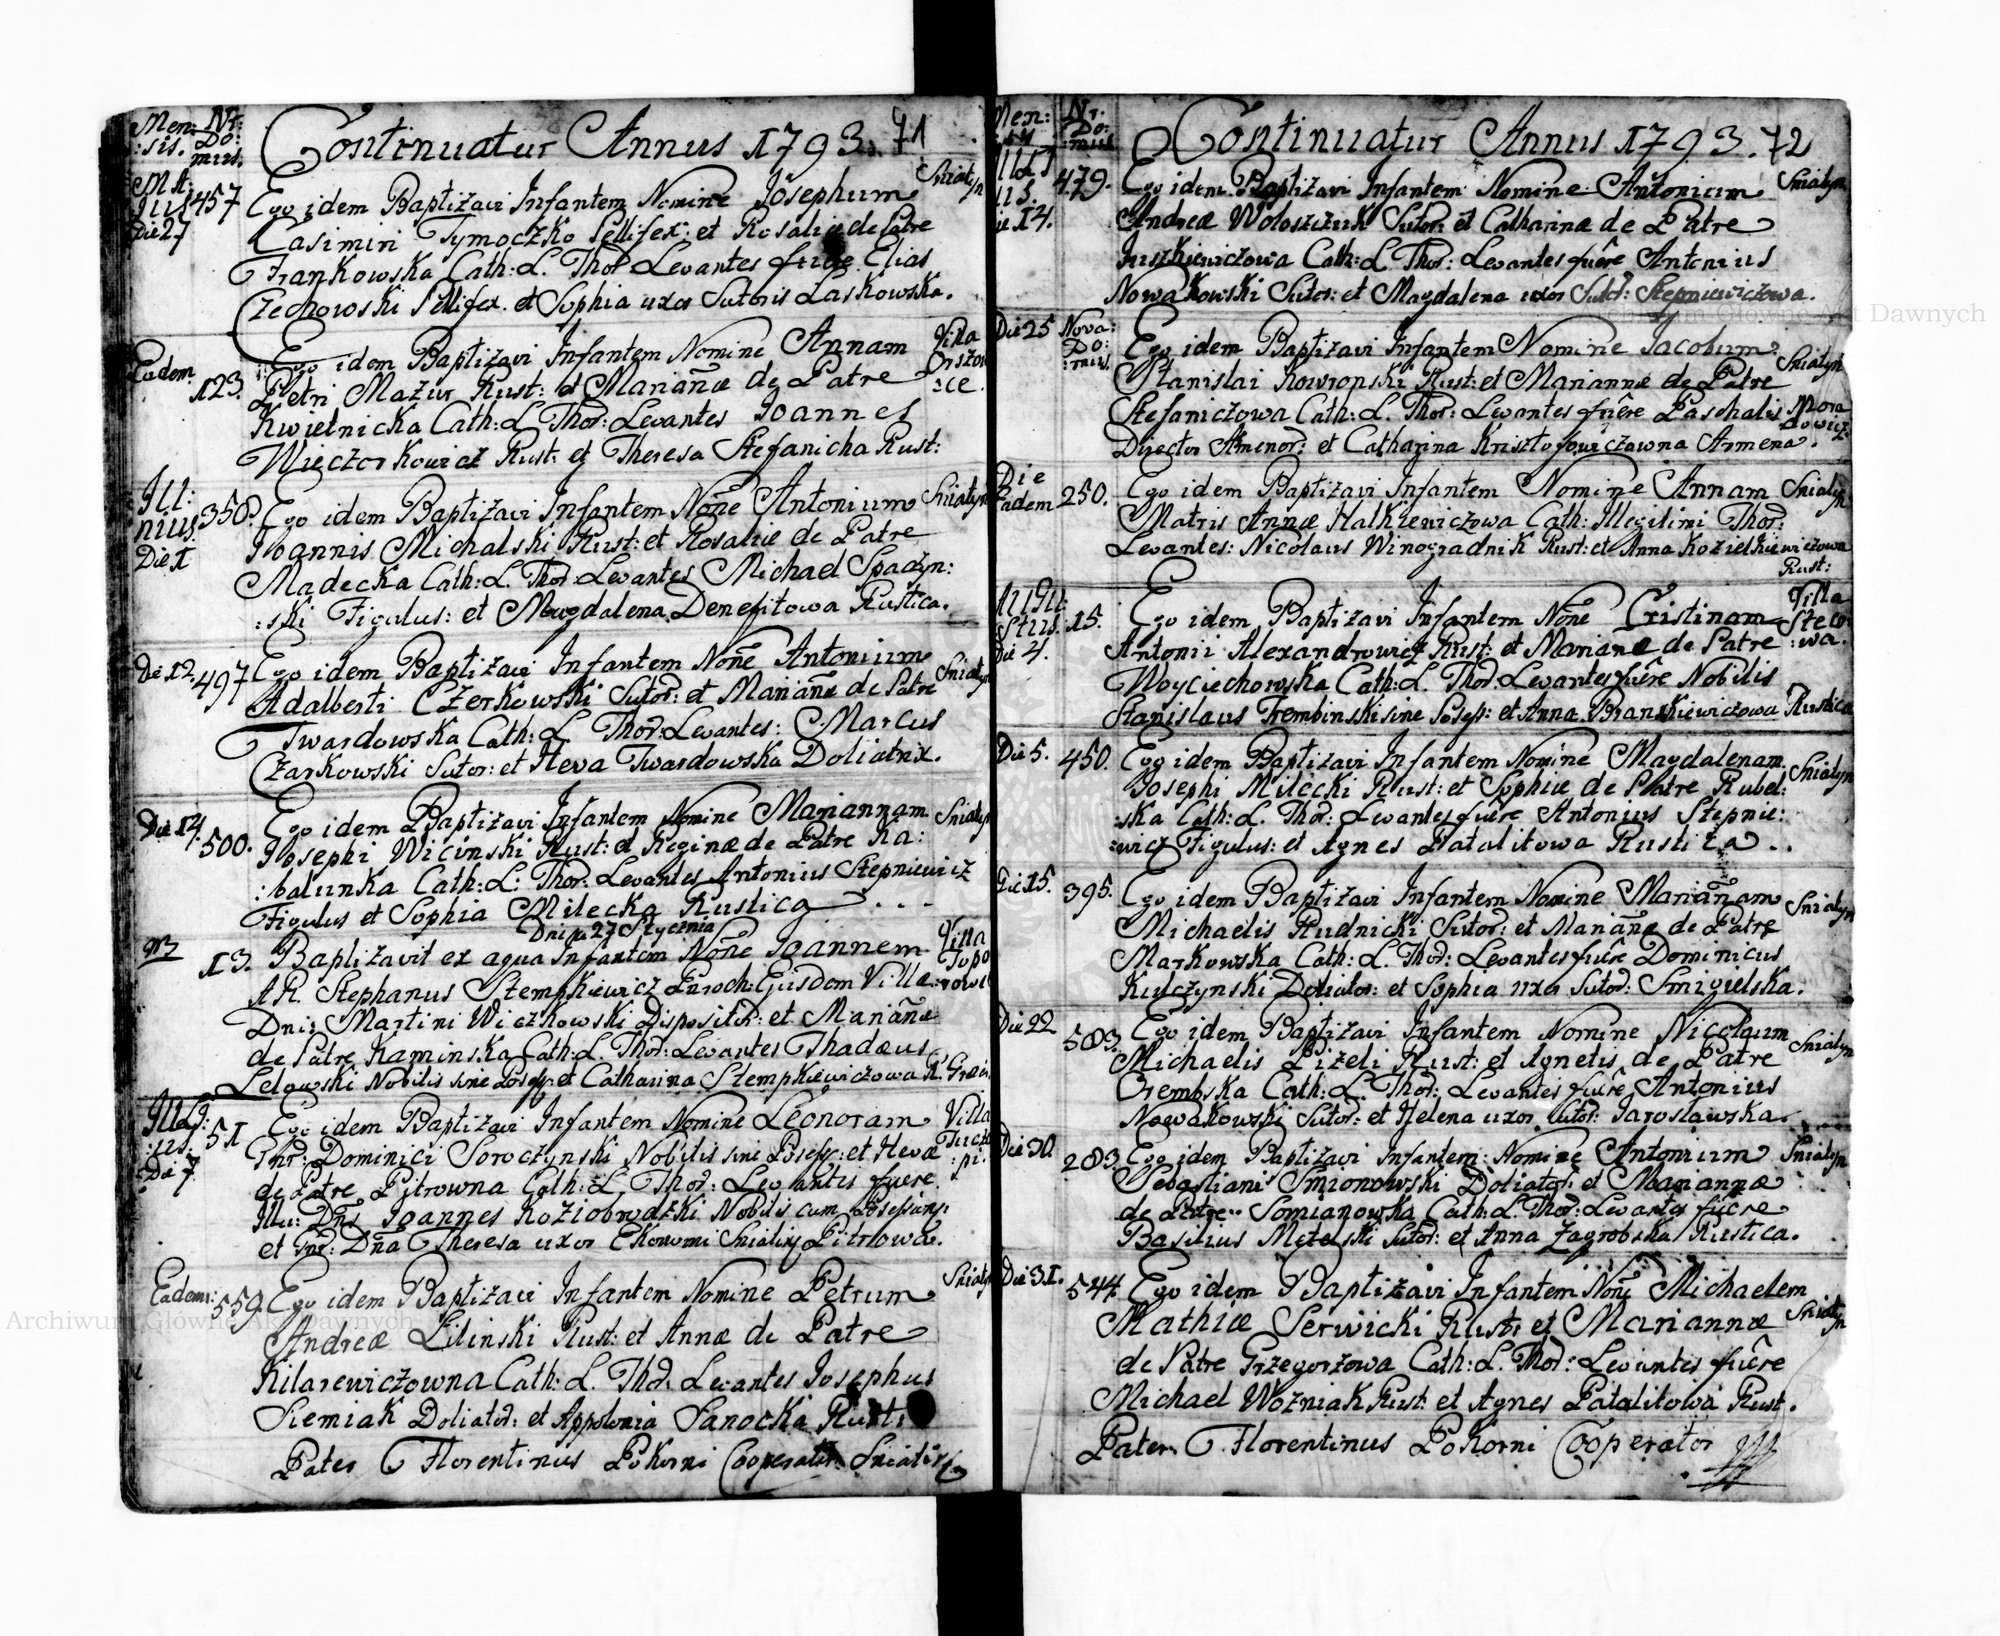 Men: Nr:
:sis. Do:
mus.
Continuatur Annus 1793. 71
Ma:
jus
Die 27
457
Sniatyn
Ego idem Baptizavi Infantem Nomine Josephum
Casimiri Tymoczko Pellifex: et Rosaliæ de Patre
Frankowska Cath: L. Thor: Levantes fuere Elias
Czechowski Pellifex. et Sophia uxor Sutoris Laskowska.
Eadem.
123.
Villa
Ego idem Baptizavi Infantem Nomine Annam
Petri Mazur Rust: et Mariañæ de Patre
Kwietnicka Cath: L. Thor: Levantes Joannes
Wieczorkowicz Rust: et Theresa Stefanicha Rust:
Ju:
nius.
Die 1
350.
Sniatyn
Ego idem Baptizavi Infantem Nõne Antonium
Joannis Michalski Rust: et Rosaliæ de Patre
Madecka Cath: L. Thor: Levantes Michael Spaczyn:
:ski Figulus: et Magdalena Denefitowa Rustica.
Die 12.
497
Sniatyn
Ego idem Baptizavi Infantem Nõne Antonium
Adalberti Czerkowski Sutor: et Mariañæ de Patre
Twardowska Cath: L Thor: Levantes: Marcus
Czarkowski Sutor: et Heva Twardowska Doliatrix.
Die 14.
500.
Sniatyn
Ego idem Baptizavi Infantem Nomine Mariannam
Josephi Wicinski Rust: et Reginæ de Patre Ka:
:balunka Cath: L: Thor: Levantes Antonius Stepniewicz
Figulus et Sophia Milecka Rustica . . -
Dnia 27 Stycznia
13.
Villa
Topo
rowce
Baptizavit ex aqua Infantem Nõne Joannem
AR. Stephanus Stempkiewicz Paroch: Ejusdem Villæ
Dni: Martini Wiczkowski Disposítor: et Mariañæ
de Patre Kaminska Cath: L. Thor: Levantes Thadæus
Letowski Nobilis sine Posess: et Catharina Stempkiewiczowa
Die 7
51
Villa
Ego idem Baptizavi Infantem Nomine Leonoram
Gnr: Dominici Soroczynski Nobilis sini Posess: et Hevæ
de Patre Pitrowna Cath: L. Thor: Levantes fuere
Illu: Dñs Joannes Koziobrodzki Nobilis cum Posessione:
et Gnr: Dña Theresa uxor Ekonomi Sniatiny Pitrowa.
Eadem:
559.
Sniatyn
Ego idem Baptizavi Infantem Nomine Petrum
Andreæ Lilinski Rust: et Annæ de Patre
Kilarewiczowna Cath: L. Thor: Levantes Josephus
Siemiak Doliator: et Appolonia Sanocka Rust:
Pater Florentinus Pokorni Cooperator Sniatin
Men:
Nr.
Do:
mus
Continuatur Annus 1793. 72
Die 14.
479.
Sniatyn
Ego idem Baptizavi Infantem Nomine Antonium
Andreæ Woloszczuk Sutor: et Catharinæ de Patre
Juszkiewiczowa Cath: L. Thor: Levantes fuêre Antonius
Nowakowski Sutor: et Magdalena uxor Sutor: Stepniewiczowa.
Die 25
Nova:
Do:
:mus.
Sniatyn
Ego idem Baptizavi Infantem Nomine Jacobum
Stanislai Kowropski Rust: et Mariannæ de Patre
Stefaniczowa Cath: L. Thor: Levantes fuêre Paschalis
Director Armenor: et Catharina Krisztofowiczowna Armena.
Die
Eadem
250.
Sniatyn
Ego idem Baptizavi Infantem Nomine Annam
Matris Annæ Halkiewiczowa Cath: Illegitimi Thor:
Levantes: Nicolaus Winogradnik Rust: et Anna Kozielkiewiczowa
Rust:
Augu:
stus.
Die 4.
15.
Villa
Stec:
:wa.
Ego idem Baptizavi Infantem Nõne Cristinam
Antonii Alexandrowicz Rust: et Marianæ de Patre
Woyciechowska Cath: L. Thor: Levantes fuêre Nobilis
Stanislaus Trembinski sine Posess: et Anna Branskiewiczowa Rustica
Die 5.
450.
Sniatyn
Ego idem Baptizavi Infantem Nomine Magdalenam
Josephi Milecki Rust: et Sophiæ de Patre Rubel:
:ska Cath: L. Thor: Levantes fuêre Antonius Stepnie:
:wicz Figulus: et Agnes Patalitowa Rustica . .
Die 15.
395.
Sniatyn
Ego idem Baptizavi Infantem Nomine Mariañam
Michaelis Rudnicki Sutor: et Mariañæ de Patre
Markowska Cath: L. Thor: Levantes fuêre Dominicus
Kulczynski Doliator: et Sophia uxor Sutor: Smigielska.
Die 22
583.
Sniatyn
Ego idem Baptizavi Infantem Nomine Nicolaum
Michaelis Lizeli Rust: et Agnetis de Patre
Orembska Cath: L. Thor: Levantes fuêre Antonius
Nowakowski Sutor: et Helena uxor Sutor: Jaroslawska.
Die 30.
283.
Sniatyn
Ego idem Baptizavi Infantem: Nomine Antonium
Sebastiani Smionowski Doliator: et Mariannæ
de Patre Somianowska Cath: L. Thor: Levantes fuêre
Basilius Metelski Sutor: et Anna Zagrobska Rustica.
Die 31.
544.
Sniatyn
Ego idem Baptizavi Infantem Nõne Michaelem
Mathiæ Serwicki Rust: et Mariannæ
de Patre Grzegorzowa Cath: L. Thor: Levantes fuêre
Michael Wozniak Rust: et Agnes Patalitowa Rust.
Pater Florentinus Pokorni Cooperator
Archiwum Główne Akt Dawnych
Archiwum Główne Akt Dawnych